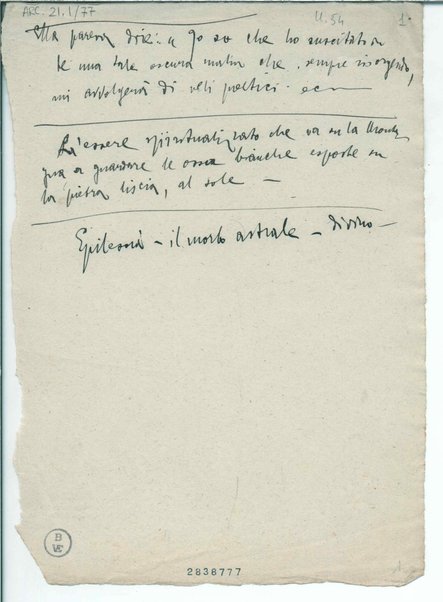 ARC. 21.1/77
U. 54
1
Ella pareva dire: io so che ho suscitato in
te una tale oscura che, sempre insorgendo,
mi avvolgerà di veli poetici. ecc
L'essere spiritualizzato che va su la
a guardare le ossa bianche esposte su
la pietra liscia, al sole —
Epilessia — il morbo astrale — divino —
B
VE
2838777
1